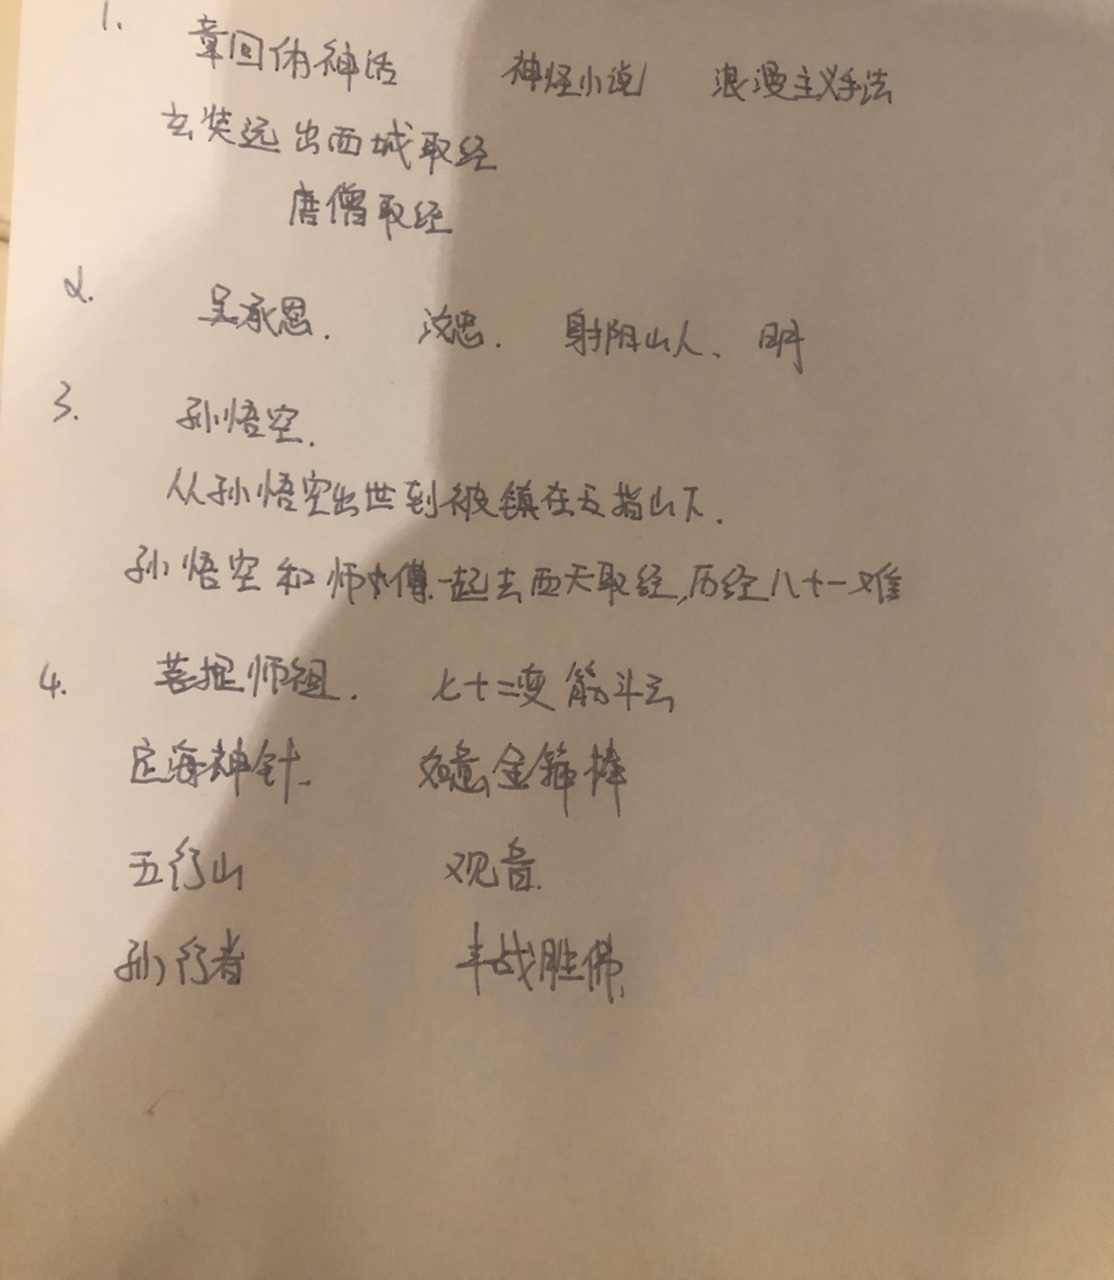 1. 章回体神话 神怪小说 浪漫主义手法
玄奘远出西域取经
唐僧取经
2. 吴承恩. 汝忠. 射阳山人、明
3. 孙悟空.
从孙悟空出世到被镇在五指山下.
孙悟空和师傅一起去西天取经,历经八十一难
4. 菩提师祖. 七十二变 筋斗云
定海神针. 如意金箍棒
五行山 观音.
孙行者 斗战胜佛.